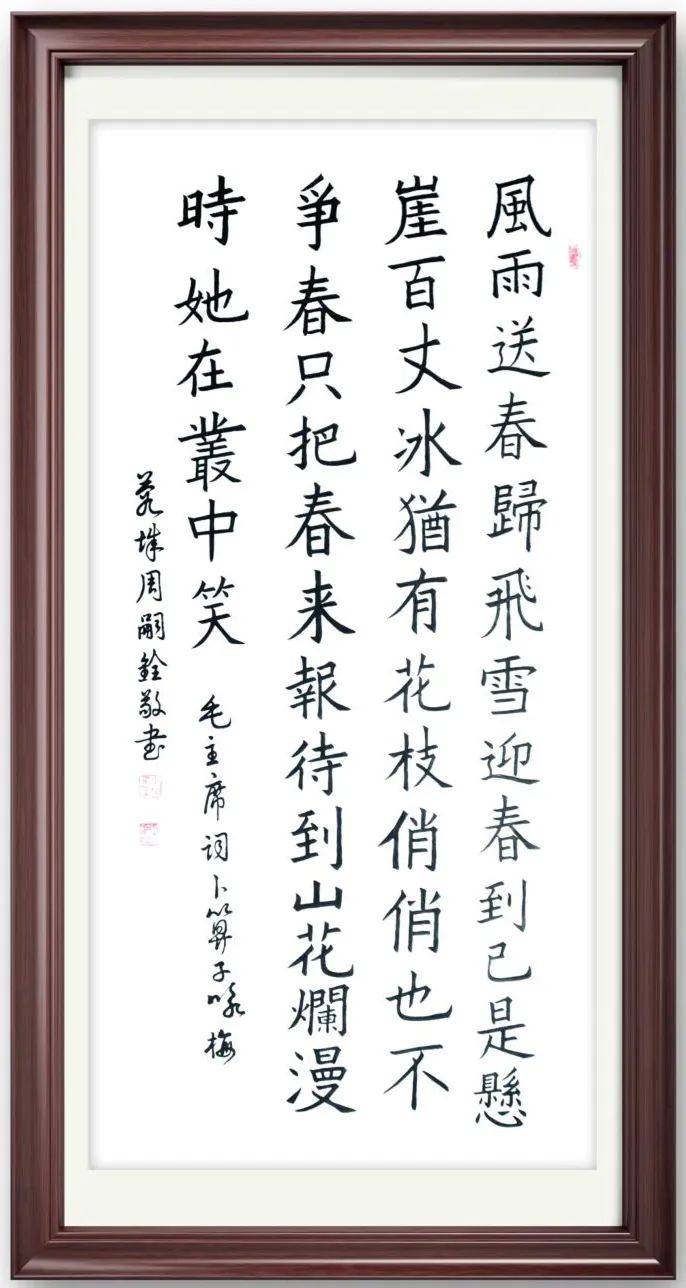 風雨送春歸飛雪迎春到已是懸
崖百丈冰猶有花枝俏俏也不
爭春只把春来報待到山花爛漫
時她在叢中笑 毛主席词卜算子咏梅
周嗣銓敬書